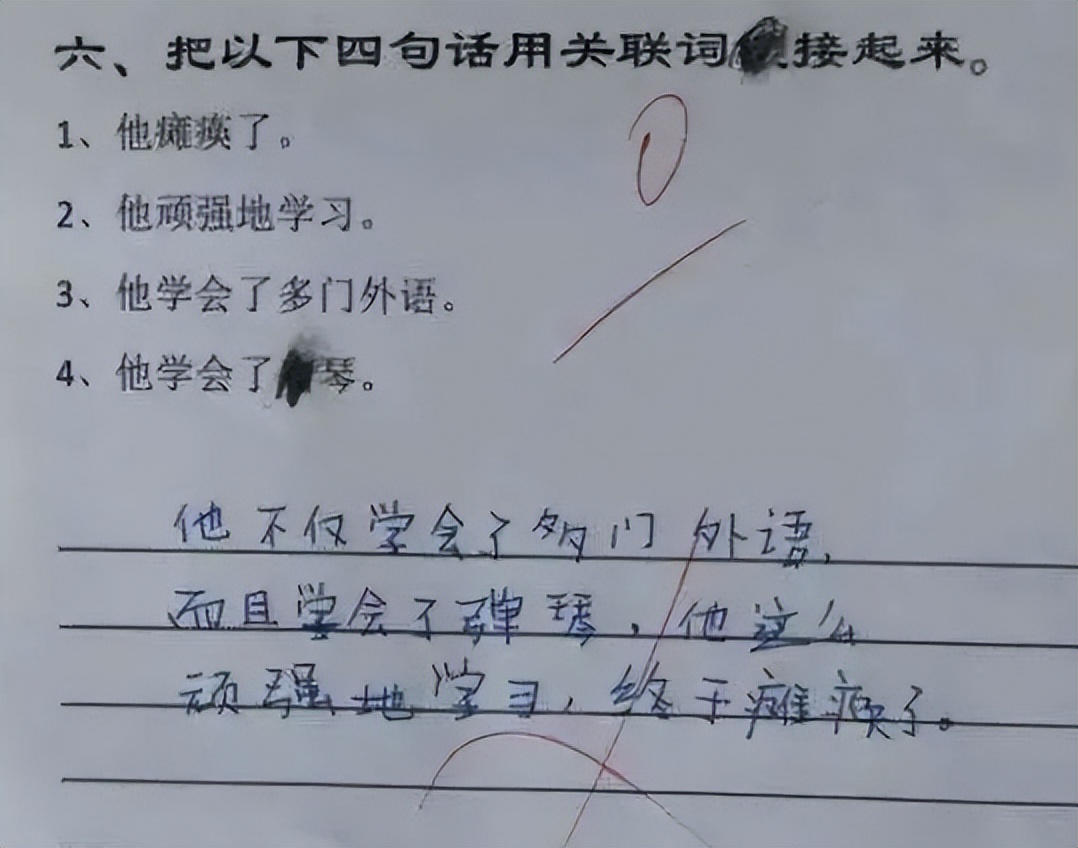 六、把以下四句话用关联词接起来。
1、他瘫痪了。
2、他顽强地学习。
3、他学会了多门外语。
4、他学会了琴。
0
他不仅学会了多门外语,
而且学会了弹琴,他这么
顽强地学习,终于瘫痪了。